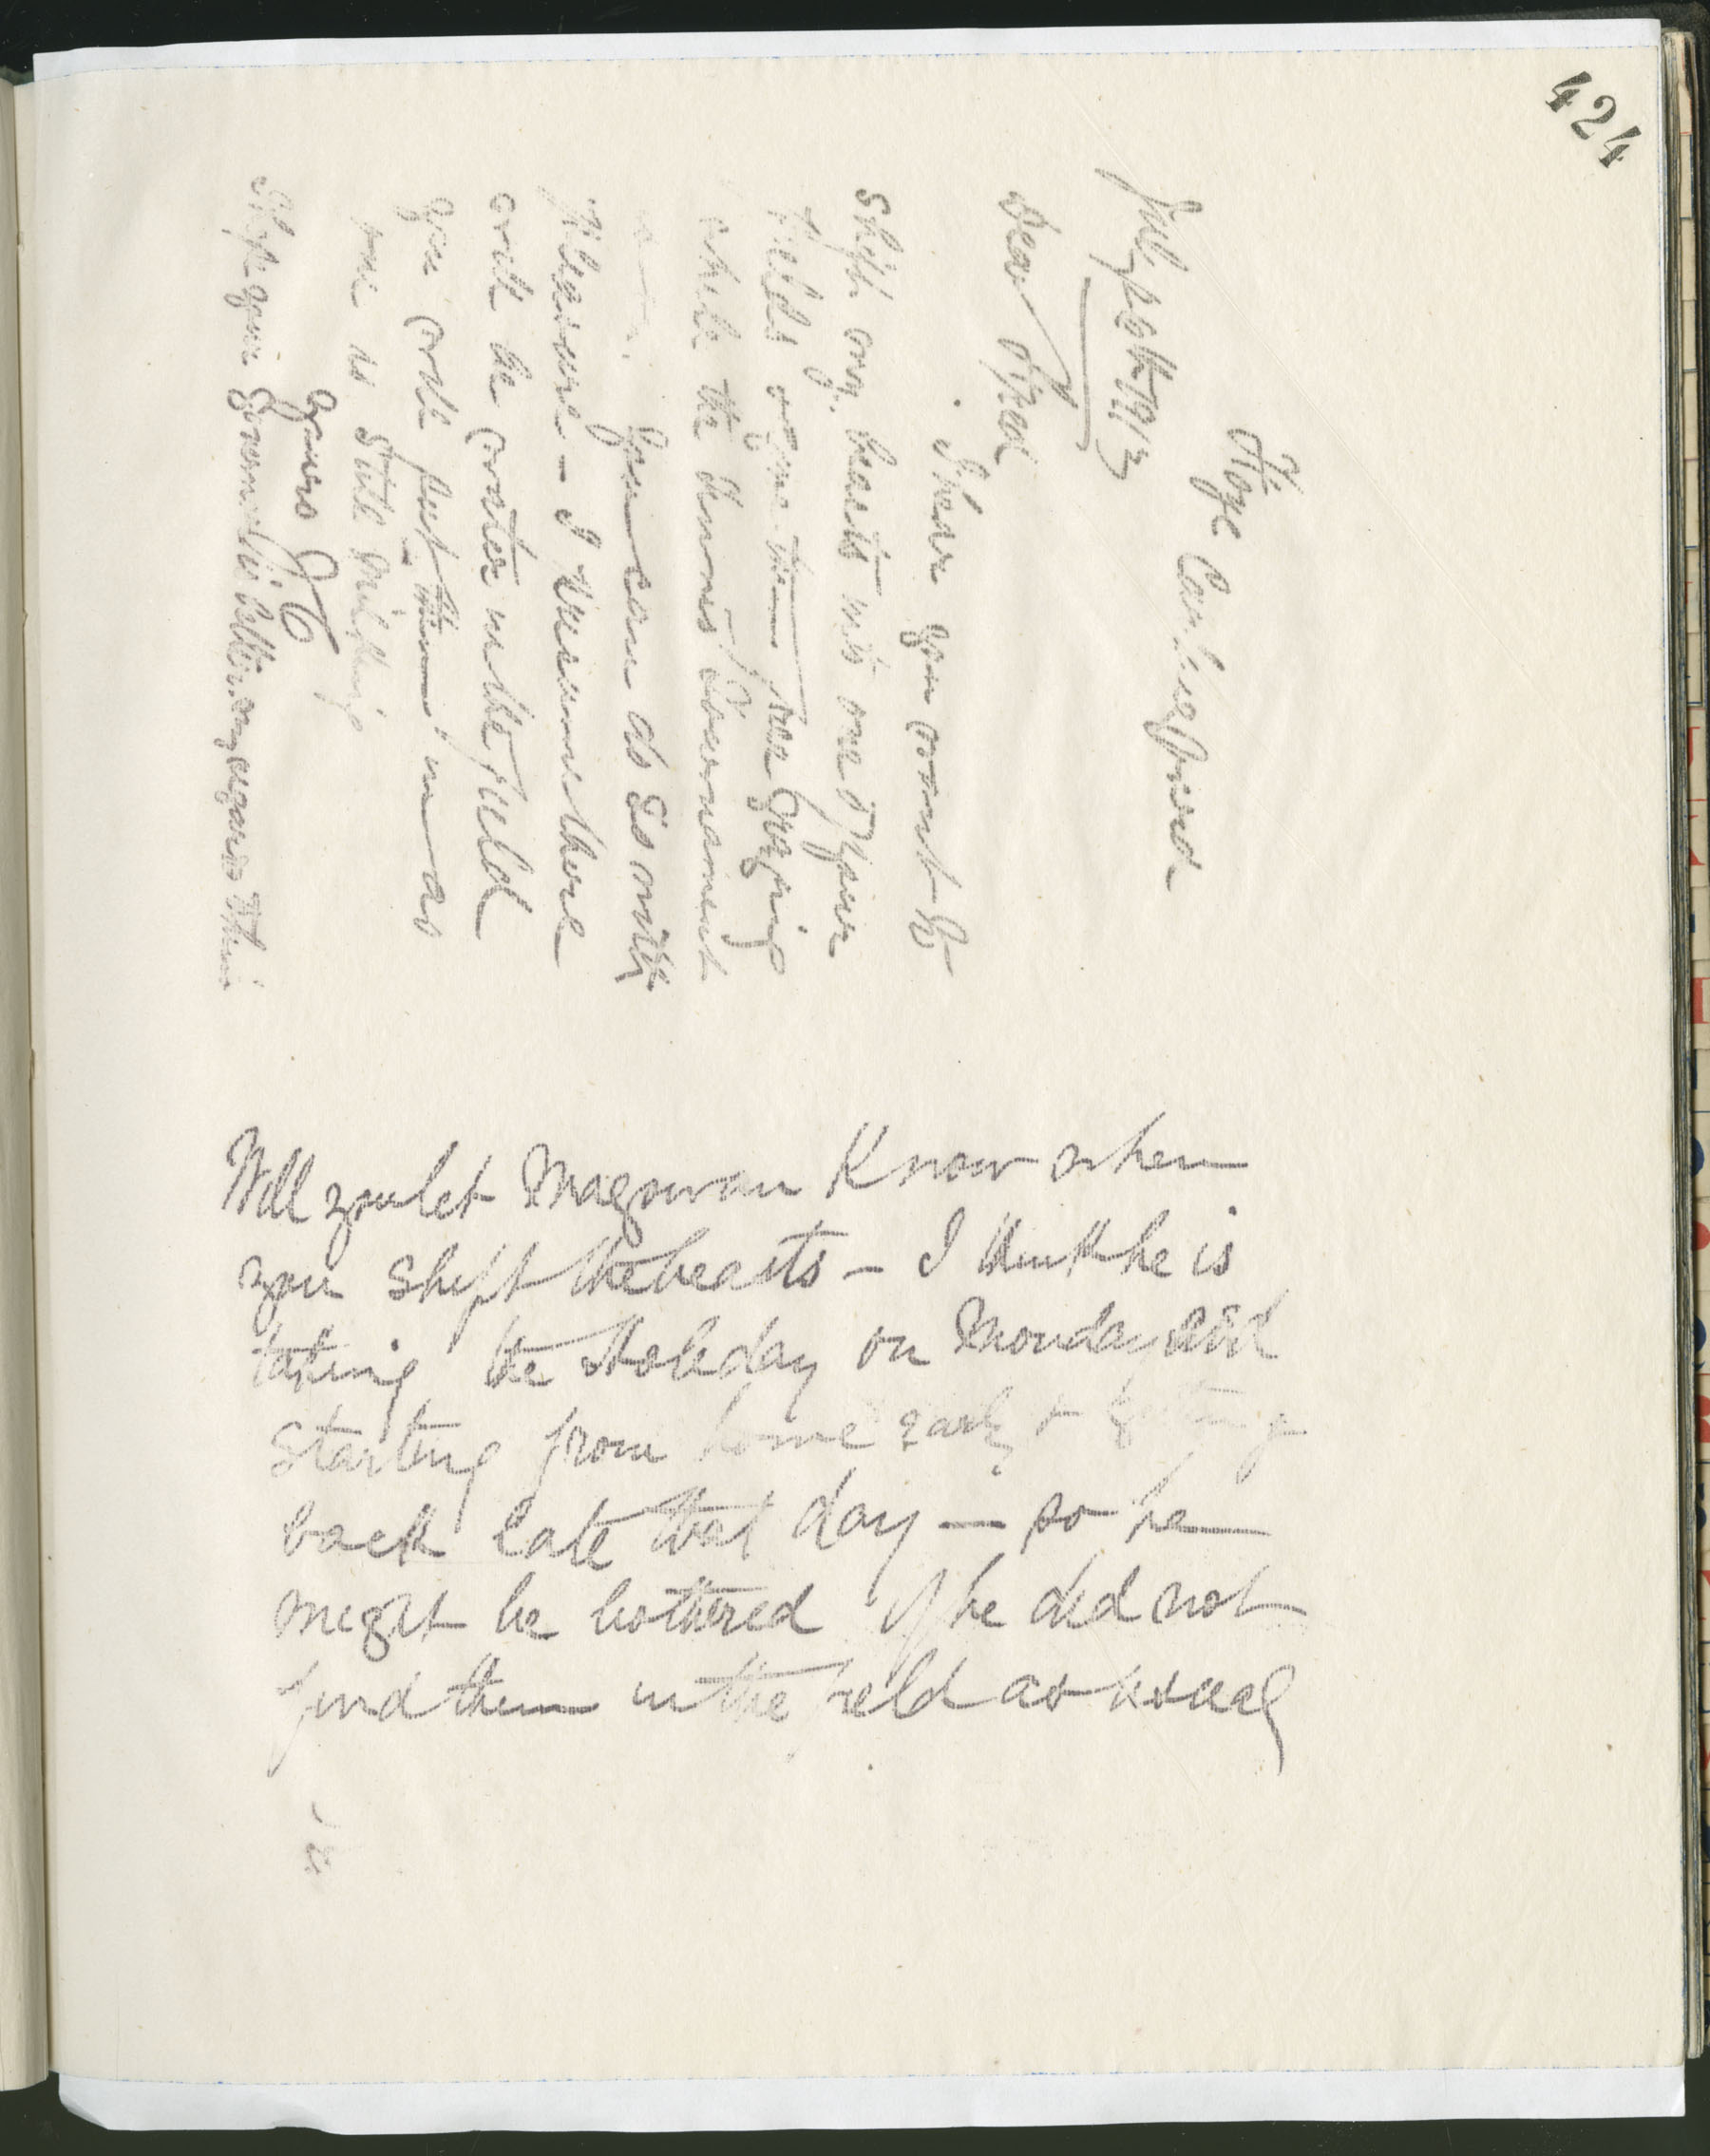 424
July 10th 1913
Dear Fred
I hear you want to
shift my beasts into one of your
fields & give them free grazing
while the Tennis Tournament
is on. You can do so with
pleasure – I presume there
will be water in the field
you will put them in as
one is still milking
Yours
I hope your Governor is better. my regards to him
Will you let Magowan Know when
you shift the beasts – I think he is
taking the Holiday on Monday and
starting from home early & getting
back late that day — so he
might be bothered if he did not
find them in the field as usual